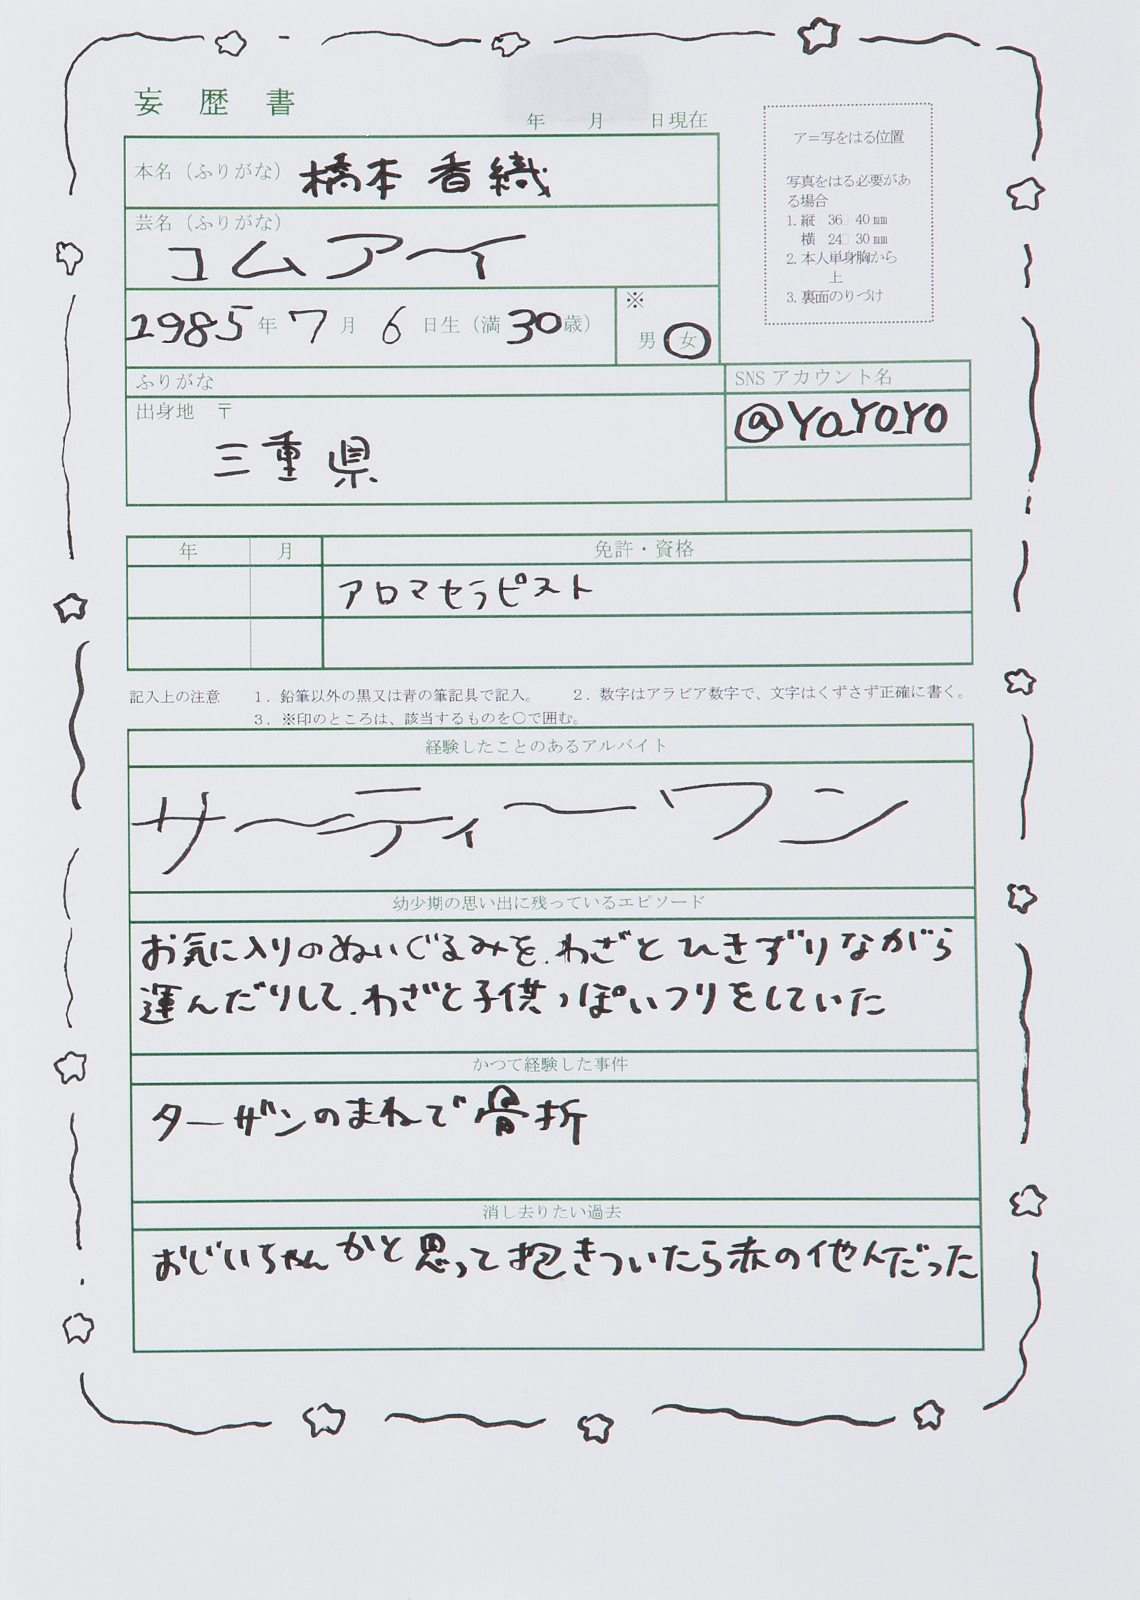 妄歴書
年 月 日現在
ア=写をはる位置
写真をはる必要があ
る場合
1. 縦 36 40 mm
横 24 30 mm
2. 本人単身胸から
上
3. 裏面のりづけ
本名（ふりがな） 橋本香織
芸名（ふりがな）
コムアイ
1985年7月6日生（満30歳）
※
男 女
ふりがな
SNS アカウント名
出身地 〒
@YO_YO_YO
三重県
年 月 免許・資格
アロマセラピスト
記入上の注意 1．鉛筆以外の黒又は青の筆記具で記入。 2．数字はアラビア数字で、文字はくずさず正確に書く。
3．※印のところは、該当するものを○で囲む。
経験したことのあるアルバイト
サーティーワン
幼少期の思い出に残っているエピソード
お気に入りのぬいぐるみを、わざとひきずりながら
運んだりして、わざと子供っぽいフリをしていた
かつて経験した事件
ターザンのまねで骨折
消し去りたい過去
おじいちゃんかと思って抱きついたら赤の他人だった